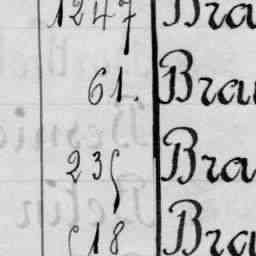 1247 Bra
61. Bra
235 Bra
518 Bra